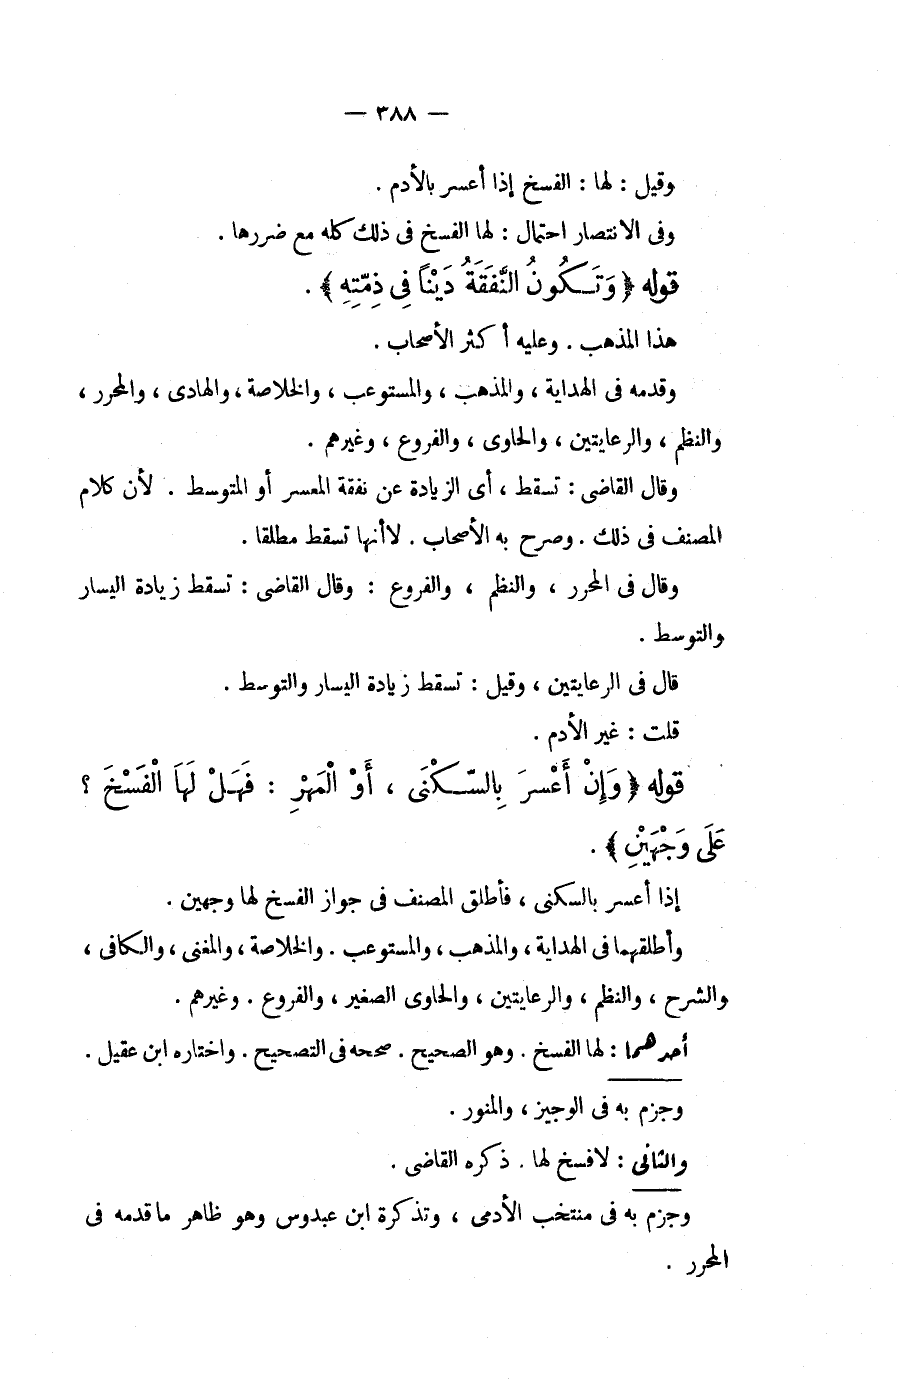 — ٣٨٨ —
وقيل : لها : الفسخ إذا أعسر بالأدم .
وفى الانتصار احتمال : لها الفسخ فى ذلك كله مع ضررها .
قوله ﴿ وَتَكُونُ النَّفَقَةُ دَيْنًا فِى ذِمَّتِهِ ﴾ .
هذا المذهب . وعليه أكثر الأصحاب .
وقدمه فى الهداية ، والمذهب ، والمستوعب ، والخلاصة ، والهادى ، والمحرر ،
والنظم ، والرعايتين ، والحاوى ، والفروع ، وغيرهم .
وقال القاضى : تسقط ، أى الزيادة عن نفقة المعسر أو المتوسط . لأن كلام
المصنف فى ذلك . وصرح به الأصحاب . لاأنها تسقط مطلقا .
وقال فى المحرر ، والنظم ، والفروع : وقال القاضى : تسقط زيادة اليسار
والتوسط .
قال فى الرعايتين ، وقيل : تسقط زيادة اليسار والتوسط .
قلت : غير الأدم .
قوله ﴿ وَإِنْ أَعْسَرَ بِالسّكْنَى ، أَوْ الْمَهْرِ : فَهَلْ لَهَا الْفَسْخَ ؟
عَلَى وَجْهَيْنِ ﴾ .
إذا أعسر بالسكنى ، فأطلق المصنف فى جواز الفسخ لها وجهين .
وأطلقهما فى الهداية ، والمذهب ، والمستوعب . والخلاصة ، والمغنى ، والكافى ،
والشرح ، والنظم ، والرعايتين ، والحاوى الصغير ، والفروع . وغيرهم .
أحدهما : لها الفسخ . وهو الصحيح . صححه فى التصحيح . واختاره ابن عقيل .
وجزم به فى الوجيز ، والمنور .
والثانى : لافسخ لها . ذكره القاضى .
وجزم به فى منتخب الأدمى ، وتذكرة ابن عبدوس وهو ظاهر ماقدمه فى
المحرر .